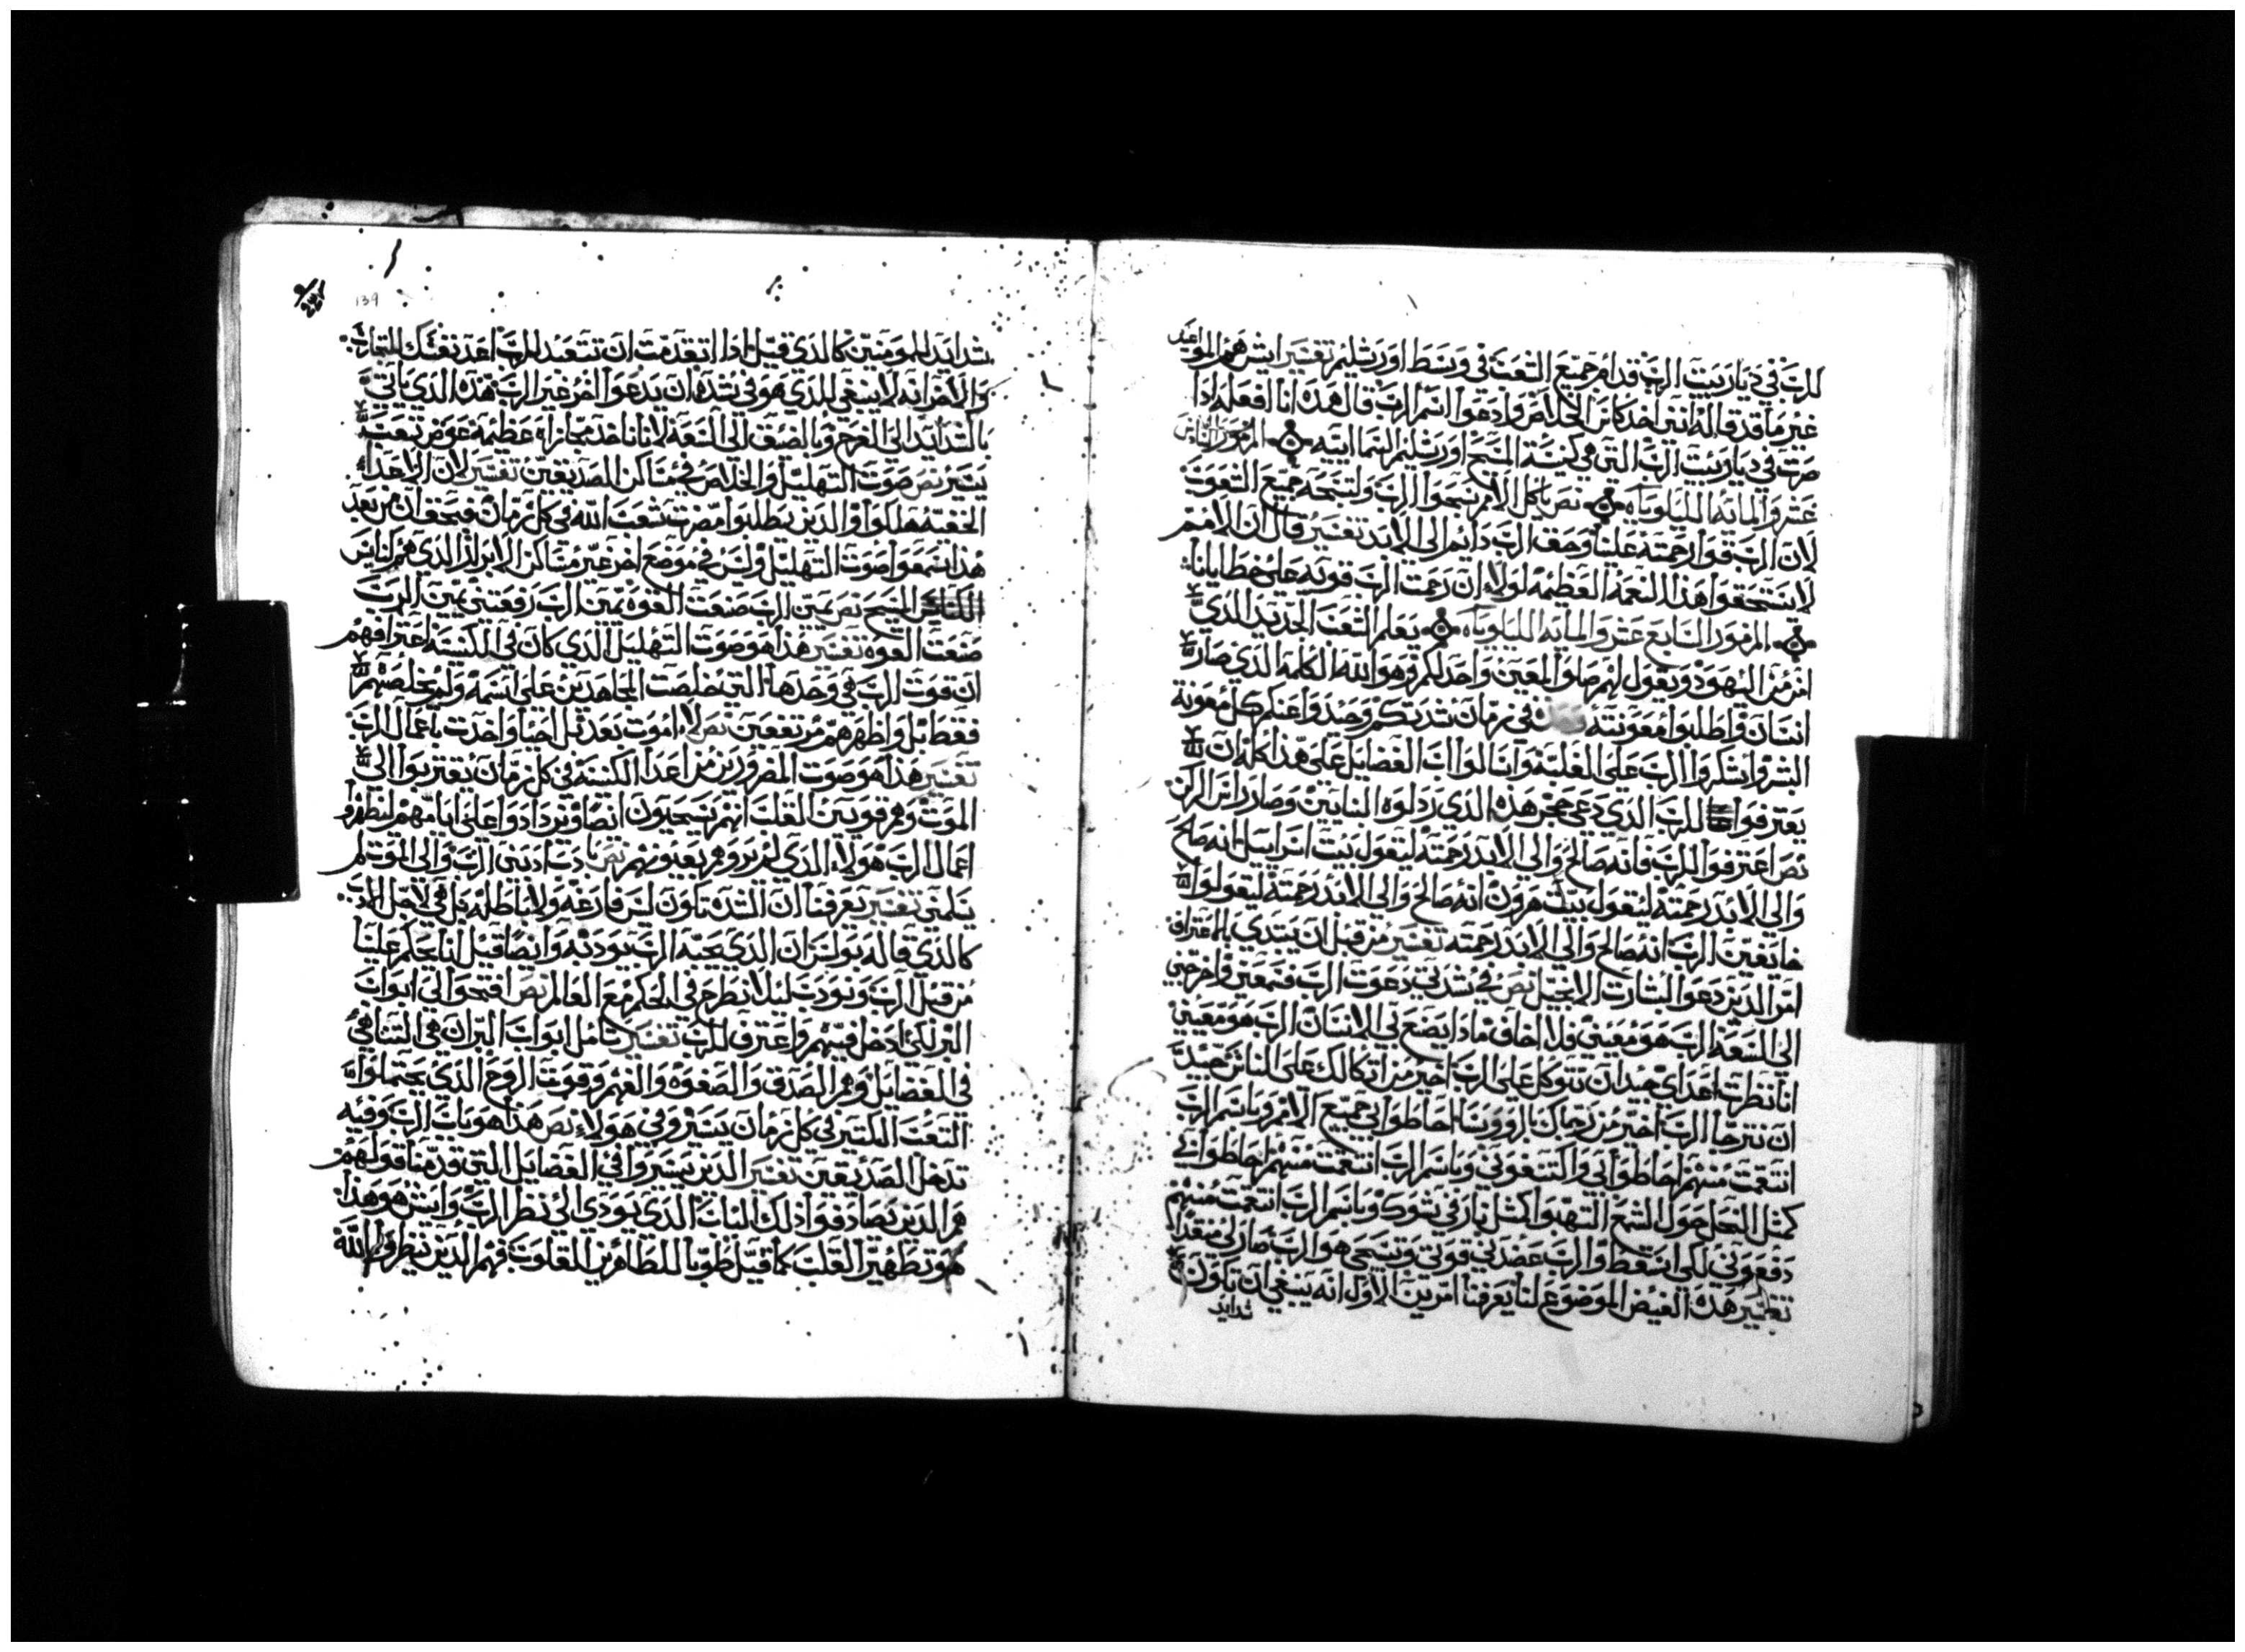 للرب في ديار بيت الرب قدام جميع الشعب في وسط اورشليم تفسير ايش هم المواعيد
غير ما قد قاله انني اخذ كاس الخلاص وادعوا اسم الرب قال هذه انا افعله اذا
صرت في ديار بيت الرب التي هي كنيسة المسيح اورشليم السمائيه المزمور السادس
عشر والمايه الليلوياه نص يا كل الامم سبحوا الرب ولتسبحه جميع الشعوب
لان الرب قوا رحمته علينا وحق الرب دائم الى الابد تفسير قال ان الامم
لا يستحقوا هذا النعمة العظيمه لولا ان رحمت الرب قويه على خطايانا
المزمور السابع عشر والمايه الليلوياه يعلم الشعب الجديد الذي
امن من اليهود ويقول لهم صار المعين واحد لكم وهو الله الكلمه الذي صار
انسان فاطلبوا معونته في زمان شدتكم وحيدوا عنكم كل معونة
البشر واشكروا الرب على الغلبه وانالوا الفضايل على هذا كله ان
يعترفوا للرب الذي دعي حجر هذه الذي رذلوه البنايين وصار راس الركن
نص اعترفوا للرب فانه صالح والى الابد رحمته ليقول بيت اسراييل انه صالح
والى الابد رحمته ليقول بيت هرون انه صالح والى الابد رحمته ليقولوا
خايفين الرب انه صالح والى الابد رحمته تفسير من قبل ان يبتدي بالاعتراف
امر الذين دعوا لبشارت الانجيل نص في شدتي دعوت الرب فسمعني واخرجني
الى السعه الرب هو معيني فلا اخاف ماذا يصنع بي الانسان الرب هو معيني
انا نظرت اعداي جيد ان تتوكل على الرب اخير من اتكالك على الناس جيد
ان تترجا الرب اخير من رجاك بالروونسا احاطوا بي جميع الامم وباسم الرب
انتقمت منهم احاطوا بي واكتنفوني وباسم الرب انتقمت منهم احاطوا بي
كمثل النحل حول الشمع التهبوا كمثل نار في شوك وباسم الرب انتقمت منهم
دفعوني لكي اسقط والرب عضدني قوتي وتسبحي هو الرب صار لي منقذا
تفسير هذه الفيض الموضوع لنا يعرفنا امرين الاول انه ينبغي ان تكون
شدايد
139
شدايد للمومنين كالذي قيل اذا اتقدمت ان تتعبد للرب اعد نفسك للتجارب
والاخر انه لا ينبغي للذي هو في شده ان يدعوا اخر غير الرب هذه الذي ياتي
بالشدايد الى الفرح وبالضيق الى السعه لاننا ناخذ مجازاه عظيمه عوض تعب
يسير نص صوت التهليل والخلاص في مساكن الصديقين تفسير لان الاعدا
الخفيه هلكوا والذين يطلبوا مضرت شعب الله في كل زمان فبحق ان من بعد
هذا سمعوا صوت التهليل وليس في موضع اخر غير مساكن الابرار الذي هم كنايس
المسيح نص يمين الرب صنعت القوه يمين الرب رفعتني يمين الرب
صنعت القوه تفسير هذا هو صوت التهليل الذي كان في الكنيسه اعترافهم
ان قوت الرب هي وحدها التي خلصت المجاهدين على اسمه ولم يخلصهم
فقط بل واظهرهم مرتفعين نص لا اموت بعد بل احيا واحدث باعمال الرب
تفسير هذا هو صوت المضرورين من اعدا الكنيسه في كل زمان يقتربوا الى
الموت وهم قويين القلب انهم سيحيون ايضا ويزدادوا على ايامهم ليظهروا
اعمال الرب هولاء الذي لم يروهم بعيونهم نص ادبا ادبني الرب والى الموت لم
يسلمني تفسير يعرفنا ان الشده تكون ليس فارغه ولا باطله بل هي لاجل الادب
كالذي قاله بولس ان الذي يحبه الرب يودبه وايضا قيل اننا يحكم علينا
من قبل الرب ونودب ليلا نطرح في الحكم مع العالم نص افتحوا لي ابواب
البر لكي ادخل فيهم واعترف للرب تفسير تامل ابواب البر ان هي التناهي
في الفضايل وهم الصدق والصفوه والفهم وقوت الروح الذي يحتملوا
التعب الكثير في كل زمان يسيروا في هولاء نص هذا هو باب الرب وفيه
تدخل الصديقين تفسير الذين يسيروا في الفضايل التي قدمنا قولهم
هم الذين يصادفوا ذلك الباب الذي يودي الى نظر الرب وايش هو هذا
هو تطهير القلب كما قيل طوبا للطاهرين القلوب فهم الذين ينظروا الله